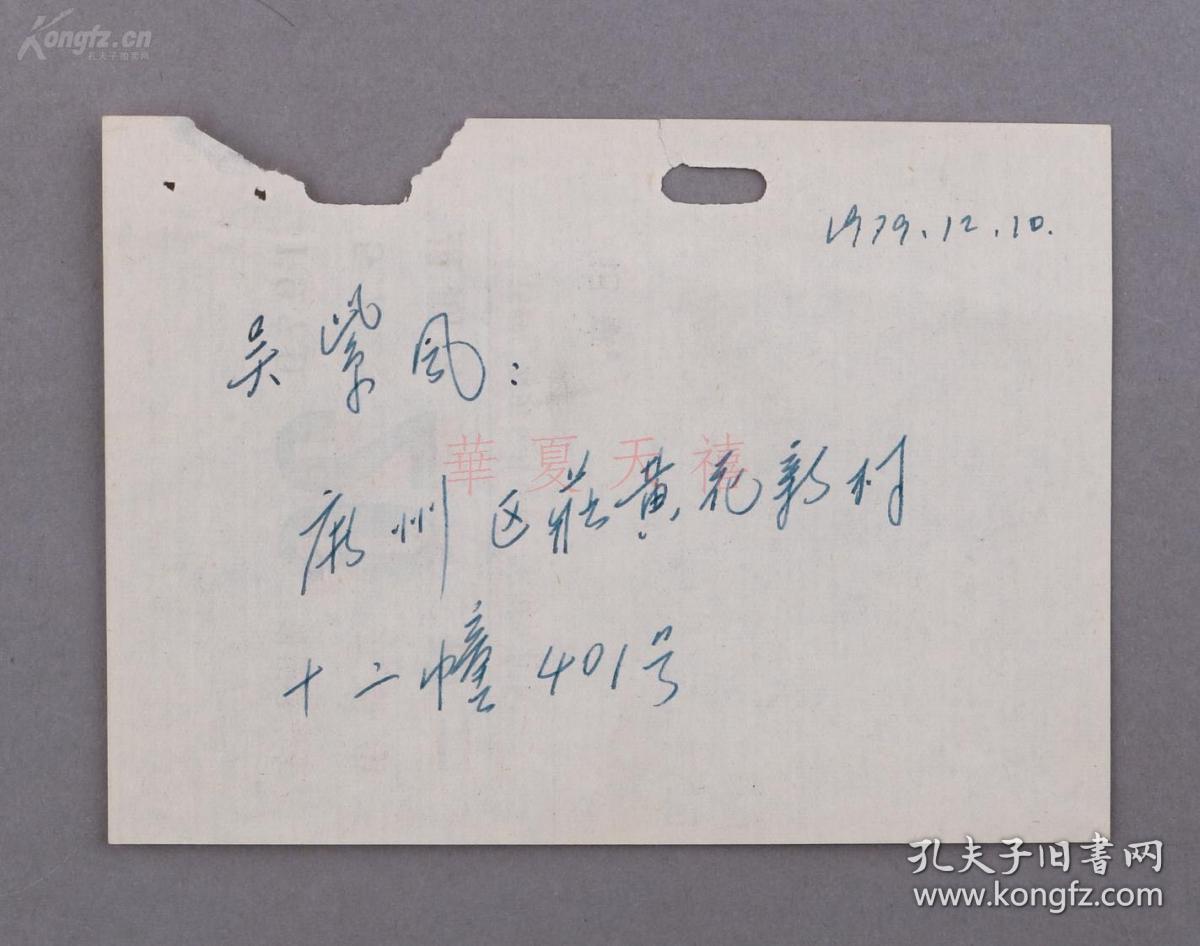 Kongfz.cn
孔夫子旧書网
1979.12.10.
吴紫风:
華夏天禧
广州区莊黄花新村
十二幢401号
孔夫子旧書网
www.kongfz.com